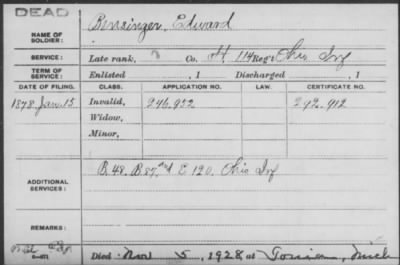 DEAD
NAME OF SOLDIER: Bensinger, Edward
SERVICE: Late rank, Co. H, 114 Reg't Ohio Inf
TERM OF SERVICE: Enlisted , 1 Discharged , 1
DATE OF FILING. CLASS. APPLICATION NO. LAW. CERTIFICATE NO.
1878 Jan. 15 Invalid, 246,952 292,912
Widow,
Minor,
ADDITIONAL SERVICES: B. 48. B 87, and E 120. Ohio Inf
REMARKS:
Died Nov 5, 1928 at Mich